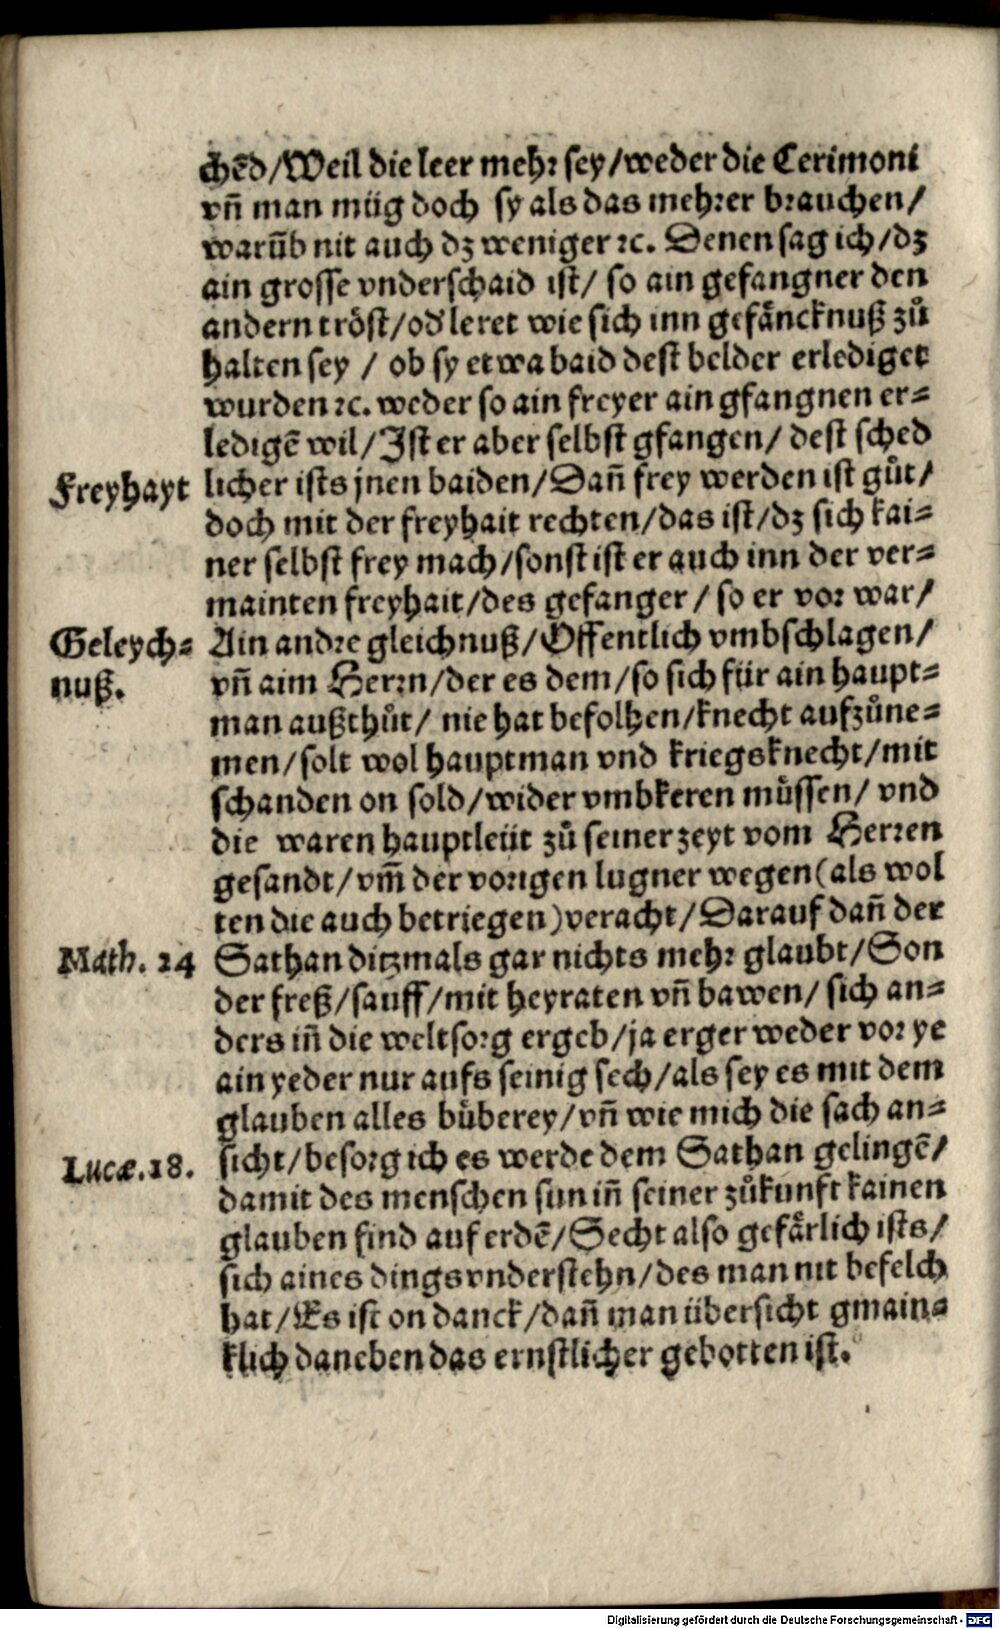 chēd/Weil die leer mehr sey/weder die Cerimoni
vn̄ man müg doch sy als das mehrer brauchen/
warūb nit auch dz weniger ꝛc. Denen sag ich/dz
ain grosse vnderschaid ist/ so ain gefangner den
andern tröst/od' leret wie sich inn gefäncknuß zů
halten sey / ob sy etwa baid dest belder erlediget
wurden ꝛc. weder so ain freyer ain gfangnen er-
ledigē wil/Ist er aber selbst gfangen/ dest sched
Freyhayt
licher ists jnen baiden/Dan̄ frey werden ist gůt/
doch mit der freyhait rechten/das ist/dz sich kai-
ner selbst frey mach/sonst ist er auch inn der ver-
mainten freyhait/des gefanger/ so er vor war/
Geleych-
nuß.
Ain andre gleichnuß/Offentlich vmbschlagen/
vn̄ aim Herrn/der es dem/so sich für ain haupt-
man außthůt/ nie hat befolhen/knecht aufzůne-
men/solt wol hauptman vnd kriegsknecht/mit
schanden on sold/wider vmbkeren müssen/ vnd
die waren hauptleüt zů seiner zeyt vom Herren
gesandt/vm̄ der vorigen lugner wegen(als wol
ten die auch betriegen)veracht/Darauf dan̄ der
Math. 24
Sathan ditzmals gar nichts mehr glaubt/Son
der freß/sauff/mit heyraten vn̄ bawen/ sich an-
ders in̄ die weltsorg ergeb/ja erger weder vor ye
ain yeder nur aufs seinig sech/als sey es mit dem
glauben alles büberey/vn̄ wie mich die sach an-
Lucæ.18.
sicht/besorg ich es werde dem Sathan gelingē/
damit des menschen sun in̄ seiner zůkunft kainen
glauben find auf erdē/Secht also gefärlich ists/
sich aines dings vnderstehn/des man nit befelch
hat/Es ist on danck/dan̄ man übersicht gmain-
klich daneben das ernstlicher gebotten ist.
Digitalisierung gefördert durch die Deutsche Forschungsgemeinschaft - DFG